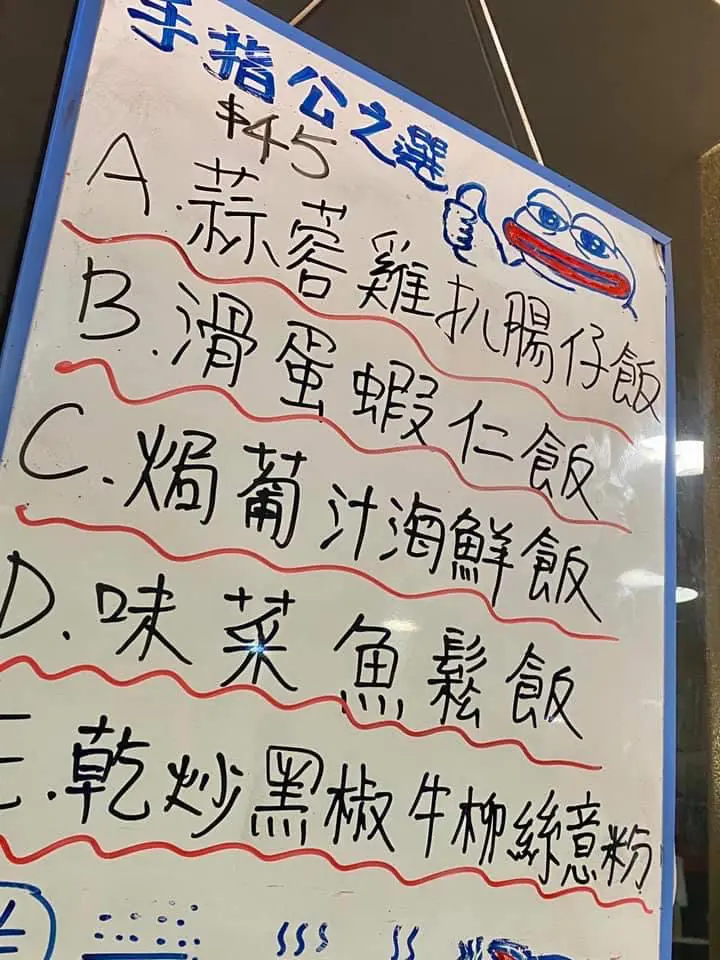 手指公之選
$45
A.蒜蓉雞扒腸仔飯
B.滑蛋蝦仁飯
C.焗葡汁海鮮飯
D.味菜魚鬆飯
E.乾炒黑椒牛柳絲意粉